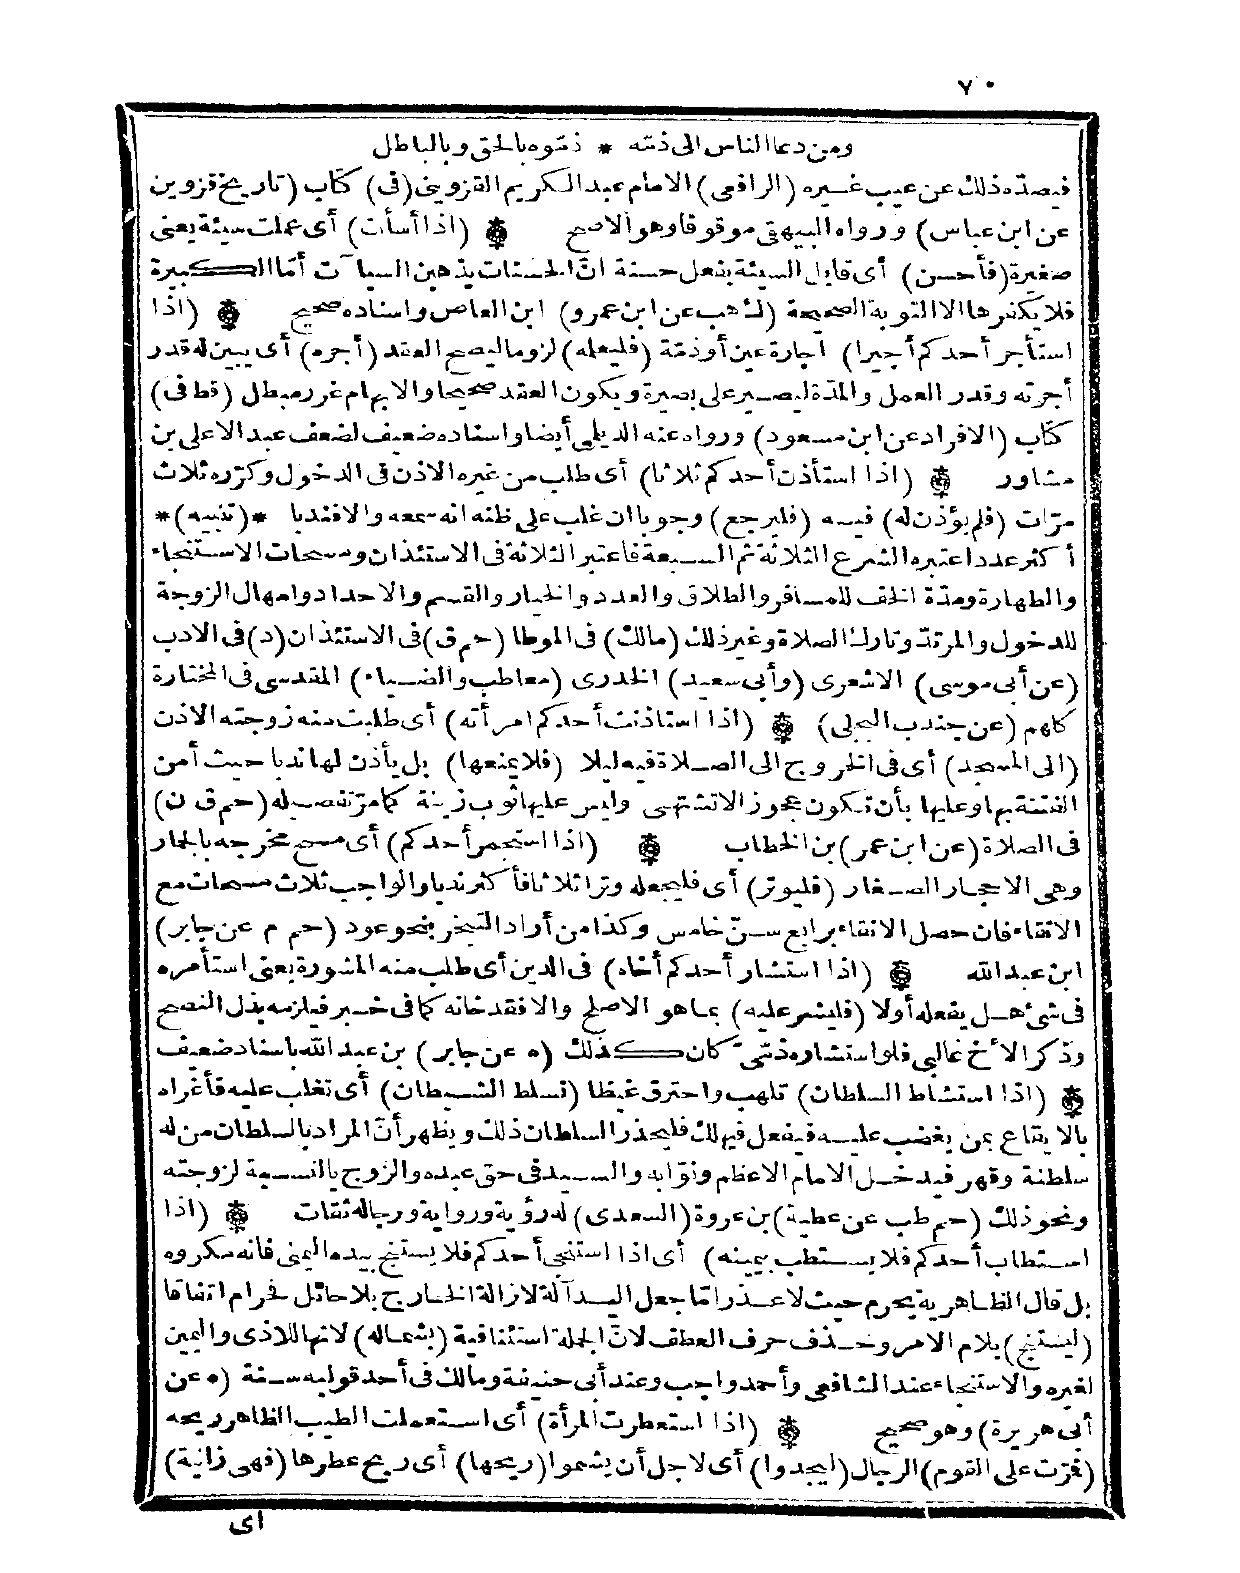 ٧٠
ومن دعا الناس الى ذمّه * ذمّوه بالحق وبالباطل
فيصدّه ذلك عن عيب غيره (الرافعى) الامام عبد الكريم القزوينى (فى) كتاب (تاريخ قزوين
عن ابن عباس) ورواه البيهقى موقوفا وهو الاصح (اذا أسأت) أى عملت سيئة يعنى
صغيرة (فأحسن) أى قابل السيئة بفعل حسنة انّ الحسنات يذهبن السيآت أمّا الكبيرة
فلا يكفرها الا التوبة الصحيحة (ك هب عن ابن عمرو) ابن العاص واسناده صحيح (اذا
استأجر أحدكم أجيرا) اجارة عين أو ذمّة (فليعلمه) لزوما ليصح العقد (أجره) أى يبين له قدر
أجرته وقدر العمل والمدّة ليصير على بصيرة ويكون العقد صحيحا والابهام غرر مبطل (قط فى)
كتاب (الافراد عن ابن مسعود) ورواه عنه الديلى أيضا واسناده ضعيف لضعف عبد الاعلى بن
مشاور (اذا استأذن أحدكم ثلاثا) أى طلب من غيره الاذن فى الدخول وكرّره ثلاث
مرّات (فلم يؤذن له) فيه (فليرجع) وجوبا ان غلب على ظنه انه سمعه والا فندبا *(تنبيه)*
أكثر عدد اعتبره الشرع الثلاثة ثم السبعة فاعتبر الثلاثة فى الاستئذان ومسحات الاستنجاء
والطهارة ومدّة الخف للمسافر والطلاق والعدد والخيار والقسم والاحداد وامهال الزوجة
للدخول والمرتدّ وتارك الصلاة وغير ذلك (مالك) فى الموطا (حم ق) فى الاستئذان (د) فى الادب
(عن أبى موسى) الاشعرى (وأبى سعيد) الخدرى (معا طب والضياء) المقدسى فى المختارة
كلهم (عن جندب البجلى) (اذا استاذنت أحدكم امرأته) أى طلبت منه زوجته الاذن
(الى المسجد) أى فى الخروج الى الصلاة فيه ليلا (فلا يمنعها) بل يأذن لها ندبا حيث أمن
الفتنة بها وعليها بأن تكون عجوزا لا تشتهى وليس عليها ثوب زينة كما مرّ تفصيله (حم ق ن)
فى الصلاة (عن ابن عمر) بن الخطاب (اذا استجمر أحدكم) أى مسح مخرجه بالجمار
وهى الاحجار الصغار (فليوتر) أى فليجعله وترا ثلاثا فأكثر ندبا والواجب ثلاث مسحات مع
الانقاء فان حصل الانقاء برابع سنّ خامس وكذا من أراد التبخر بنحو عود (حم م عن جابر)
ابن عبد الله (اذا استشار أحدكم أخاه) فى الدين أى طلب منه المشورة يعنى استأمره
فى شئ هل يفعله أولا (فليشر عليه) بما هو الاصلح والا فقد خانه كما فى خبر فيلزمه بذل النصح
وذكر الأخ غالبى فلو استشاره ذمّىّ كان كذلك (ه عن جابر) بن عبد الله باسناد ضعيف
(اذا استشاط السلطان) تلهب واحترق غيظا (تسلط الشيطان) أى تغلب عليه فأغراه
بالايقاع بمن يغضب عليه فيفعل فيهلك فليحذر السلطان ذلك ويظهر أنّ المراد بالسلطان من له
سلطنة وقهر فيدخل الامام الاعظم ونوّابه والسيد فى حق عبده والزوج بالنسبة لزوجته
ونحو ذلك (حم طب عن عطية) بن عروة (السعدى) له رؤية ورواية ورجاله ثقات (اذا
استطاب أحدكم فلا يستطب بيمينه) أى اذا استنجى أحدكم فلا يستنج بيده اليمنى فانه مكروه
بل قال الظاهرية يحرم حيث لا عذر امّا جعل اليد آلة لازالة الخارج بلا حائل فحرام اتفاقا
(ليستنج) بلام الامر وحذف حرف العطف لانّ الجملة استئنافية (بشماله) لانها للاذى واليمين
لغيره والاستنجاء عند الشافعى وأحمد واجب وعند أبى حنيفة ومالك فى أحد قوليه سنة (ه عن
أبى هريرة) وهو صحيح (اذا استعطرت المرأة) أى استعملت الطيب الظاهر ريحه
(فمرّت على القوم) الرجال (ليجدوا) أى لاجل أن يشموا (ريحها) أى ريح عطرها (فهى زانية)
اى